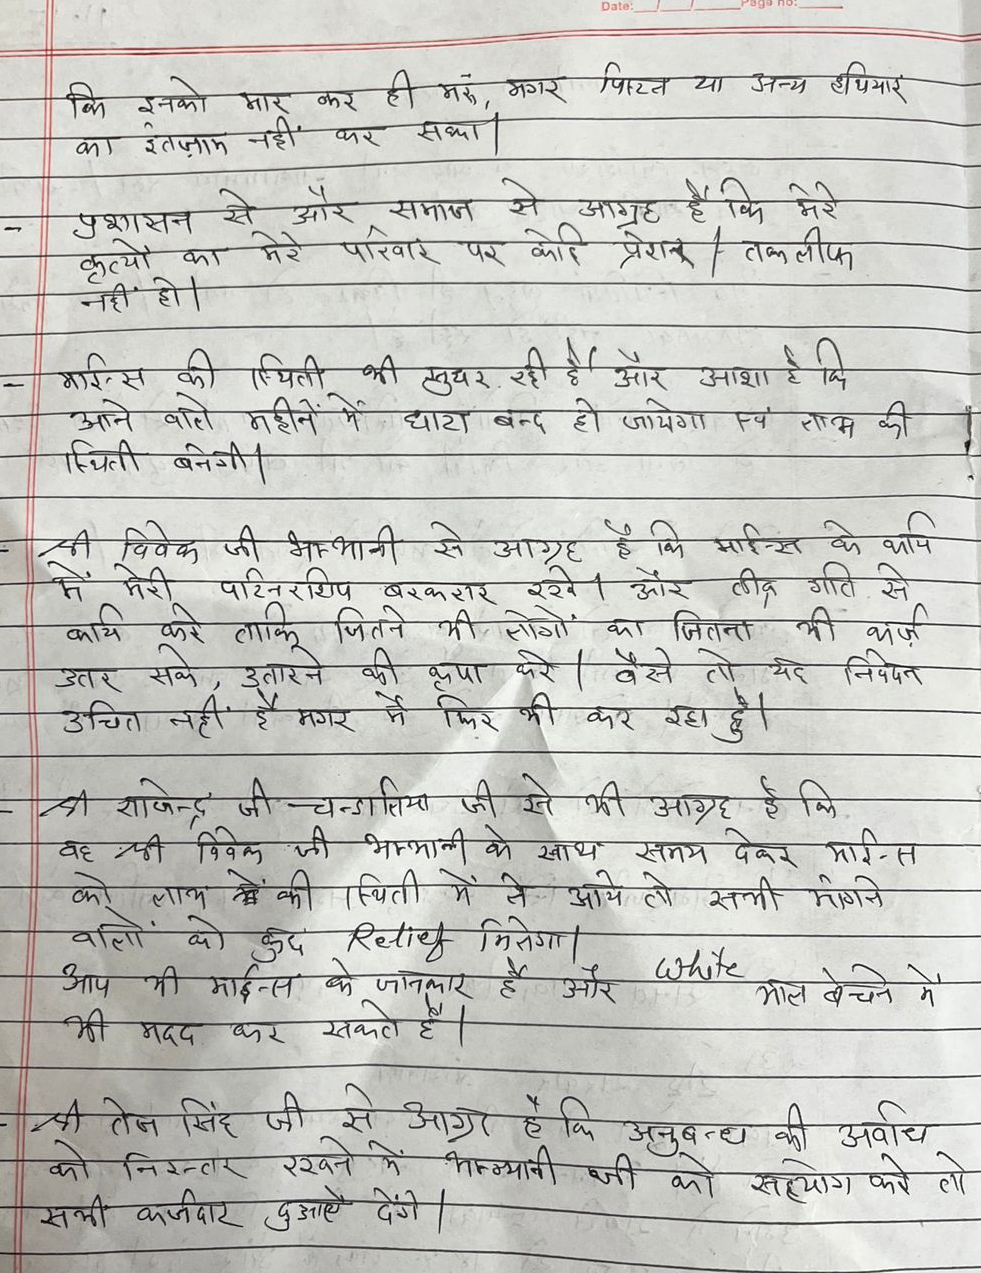 Date: / / Page no:
कि इनको मार कर ही मरूं, मगर पिस्टल या अन्य हथियार
का इंतज़ाम नहीं कर सका।
- प्रशासन से और समाज से आग्रह है कि मेरे
कृत्यों का मेरे परिवार पर कोई प्रेशर / तकलीफ
नहीं हो।
- माईन्स की स्थिती भी सुधर रही है और आशा है कि
आने वाले महीनें में घाटा बन्द हो जायेगा एवं लाभ की
स्थिती बनेगी।
- श्री विवेक जी भम्भानी से आग्रह है कि माईन्स के कार्य
में मेरी पार्टनरशिप बरकरार रखे। और तीव्र गति से
कार्य करे ताकि जितने भी लोगों का जितना भी कर्ज़
उतर सके, उतारने की कृपा करे। वैसे तो यह निवेदन
उचित नहीं है मगर मैं फिर भी कर रहा हुँ।
- श्री राजेन्द्र जी चन्डालिया जी से भी आग्रह है कि
वह श्री विवेक जी भम्भानी के साथ समय देकर माईन्स
को लाभ की स्थिती में ले आये तो सभी मांगने
वालों को कुछ Relief मिलेगा।
आप भी माईन्स के जानकार है और White माल बेचने में
भी मदद कर सकते है।
- श्री तेज सिंह जी से आग्रह है कि अनुबन्ध की अवधि
को निरन्तर रखने में भम्भानी जी को सहयोग करे तो
सभी कर्जदार दुआऐं देंगे।